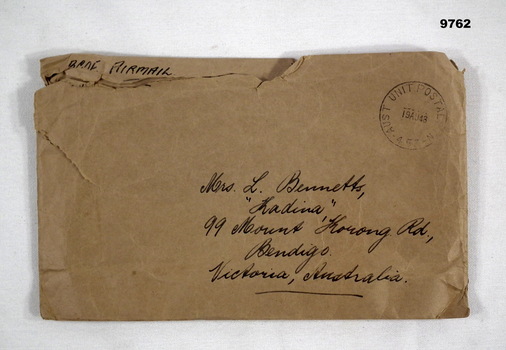 9762
AIRMAIL
AUST UNIT POSTAL
Mrs. L. Bennetts,
"Kadina"
99 Mount Korong Rd.,
Bendigo.
Victoria, Australia.